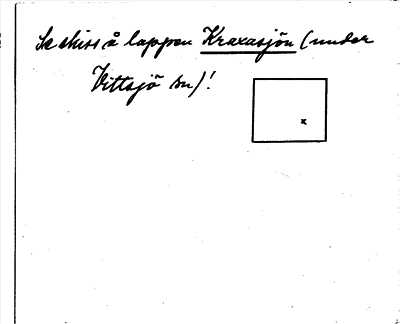 Se skiss å lappen Kraxasjön (under
Vittsjö sn)!
x